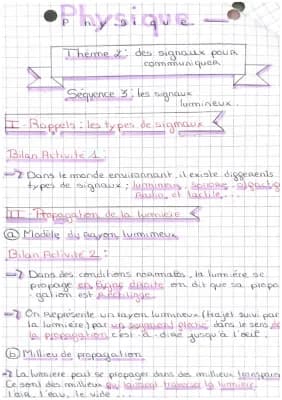 Physique
Thème 2 : des signaux pour
communiquer
Séquence 3 : les signaux
lumineux.
I - Rappels : les types de signaux
Bilan Activité 1 :
→ Dans le monde environnant, il existe différents
types de signaux : lumineux, sonore, olfactif
et tactile...
II - Propagation de la lumière
a Modèle du rayon lumineux
Bilan Activité 2 :
→ Dans des conditions normales, la lumière se
propage en ligne droite on dit que sa propa
-gation est rectiligne.
→ On représente un rayon lumineux (trajet suivi par
la lumière) par un segment fléché dans le sens de
la propagation c'est-à-dire jusqu'à l'œil.
b Milieu de propagation
→ La lumière peut se propager dans des milieux transparen
Ce sont des milieux qui laissent traverser la lumière
l'air, l'eau, le vide ...